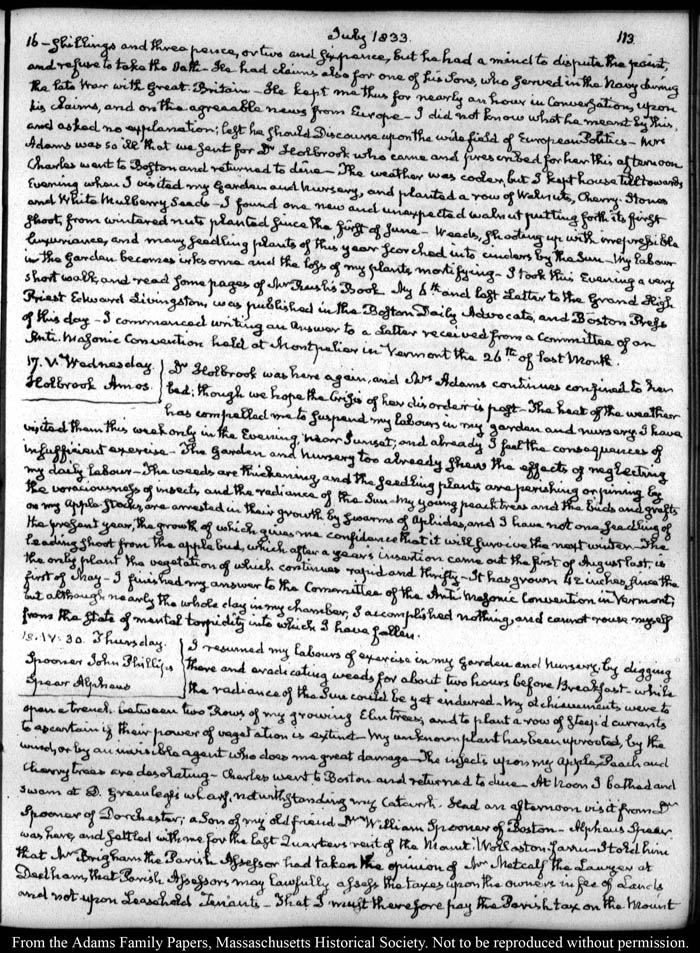 July 1833.
113
16 – Shillings and three pence, or two and sixpence, but he had a mind to dispute the point,
and refuse to take the Oath – He had claims also for one of his Sons, who served in the Navy during
the late War with Great-Britain – He kept me thus for nearly an hour in Conversation, upon
his claims, and on the agreeable news from Europe – I did not know what he meant by this,
and asked no explanation; lest he should Discourse upon the wide field of European Politics – Mrs
Adams was so ill that we sent for Dr. Holbrook who came and prescribed for her this afternoon
Charles went to Boston and returned to dine – The weather was cooler, but I kept house till towards
Evening when I visited my Garden and Nursery, and planted a row of Walnuts, Cherry Stones
and White Mulberry Seeds – I found one new and unexpected walnut putting forth its first
shoot, from wintered nuts planted since the first of June – Weeds, shooting up with irrepressible
luxuriance, and many seedling plants of this year scorched into cinders by the Sun – My labour
in the Garden becomes irksome and the loss of my plants, mortifying – I took this Evening a very
short walk, and read some pages of Mr Rush's Book. My 6th and last Letter to the Grand High
Priest Edward Livingston, was published in the Boston Daily Advocate, and Boston Press
of this day – I commenced writing an answer to a Letter received from a Committee of an
Anti-Masonic Convention held at Montpelier in Vermont the 26th of last Month.
17. V. Wednesday.
Holbrook Amos.
Dr Holbrook was here again, and Mrs Adams continues confined to her
bed; though we hope the Crisis of her disorder is past – The heat of the weather
has compelled me to suspend my labours in my garden and nursery. I have
visited them this week only in the Evening, near Sunset; and already I feel the consequences of
insufficient exercise – The Garden and Nursery too already shew the effects of neglecting
my daily labour – The weeds are thickening, and the seedling plants are perishing or pining by
the voraciousness of insects, and the radiance of the Sun – My young peach trees and the buds and grafts
on my Apple stocks, are arrested in their growth by swarms of Aphides, and I have not one seedling of
the present year, the growth of which gives me confidence that it will survive the next winter – The
leading shoot from the apple bud, which after a year's insertion came out the first of August last, is
the only plant the vegetation of which continues rapid and thrifty – It has grown 42 inches, since the
first of May – I finished my answer to the Committee of the Anti-Masonic Convention in Vermont;
but although nearly the whole day in my chamber, I accomplished nothing, and cannot rouse myself
from the State of mental torpidity into which I have fallen.
18. IV. 30. Thursday.
Spooner John Phillips
Spear Alpheus
I resumed my labours of exercise in my Garden and Nursery; by digging
there and eradicating weeds for about two hours before Breakfast – while
the radiance of the Sun could be yet endured – My atchievements were to
open a trench between two Rows of my growing Elm trees, and to plant a row of steep'd currants
to ascertain if their power of vegetation is extinct – My unknown plant has been uprooted, by the
wind, or by an invisible agent who does me great damage – The insects upon my Apple, Peach and
Cherry trees are desolating – Charles went to Boston and returned to dine – At Noon I bathed and
swam at D. Greenleaf's wharf, notwithstanding my Catarrh. Had an afternoon visit from Dr
Spooner of Dorchester; a Son of my old friend Dr William Spooner of Boston – Alpheus Spear
was here, and settled with me for the last Quarters rent of the Mount-Wollaston farm – I told him
that Mr Brigham the Parish Assessor had taken the opinion of Mr Metcalf the Lawyer at
Dedham, that Parish Assessors may lawfully assess the taxes upon the owners in fee of Lands
and not upon Leasehold Tenants – That I must therefore pay the Parish tax on the Mount
From the Adams Family Papers, Massachusetts Historical Society. Not to be reproduced without permission.